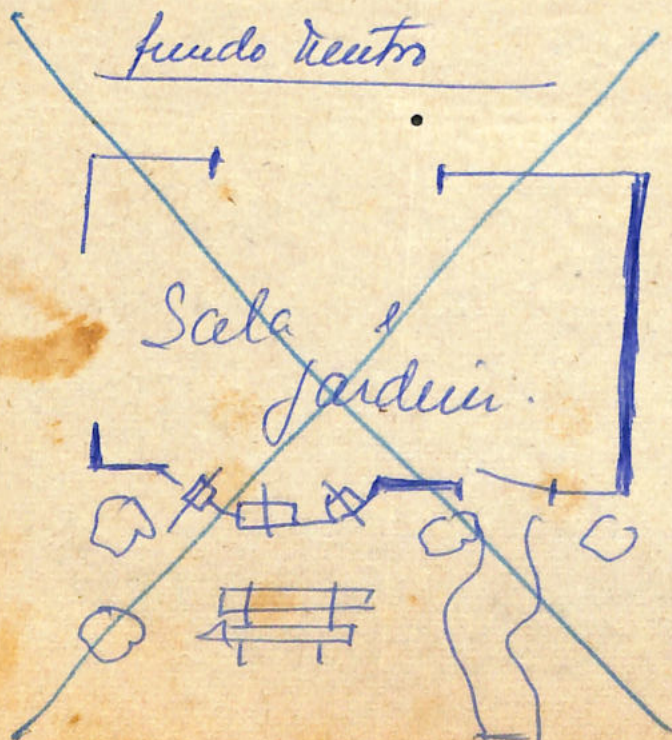 fundo neutro
Sala e
jardim.